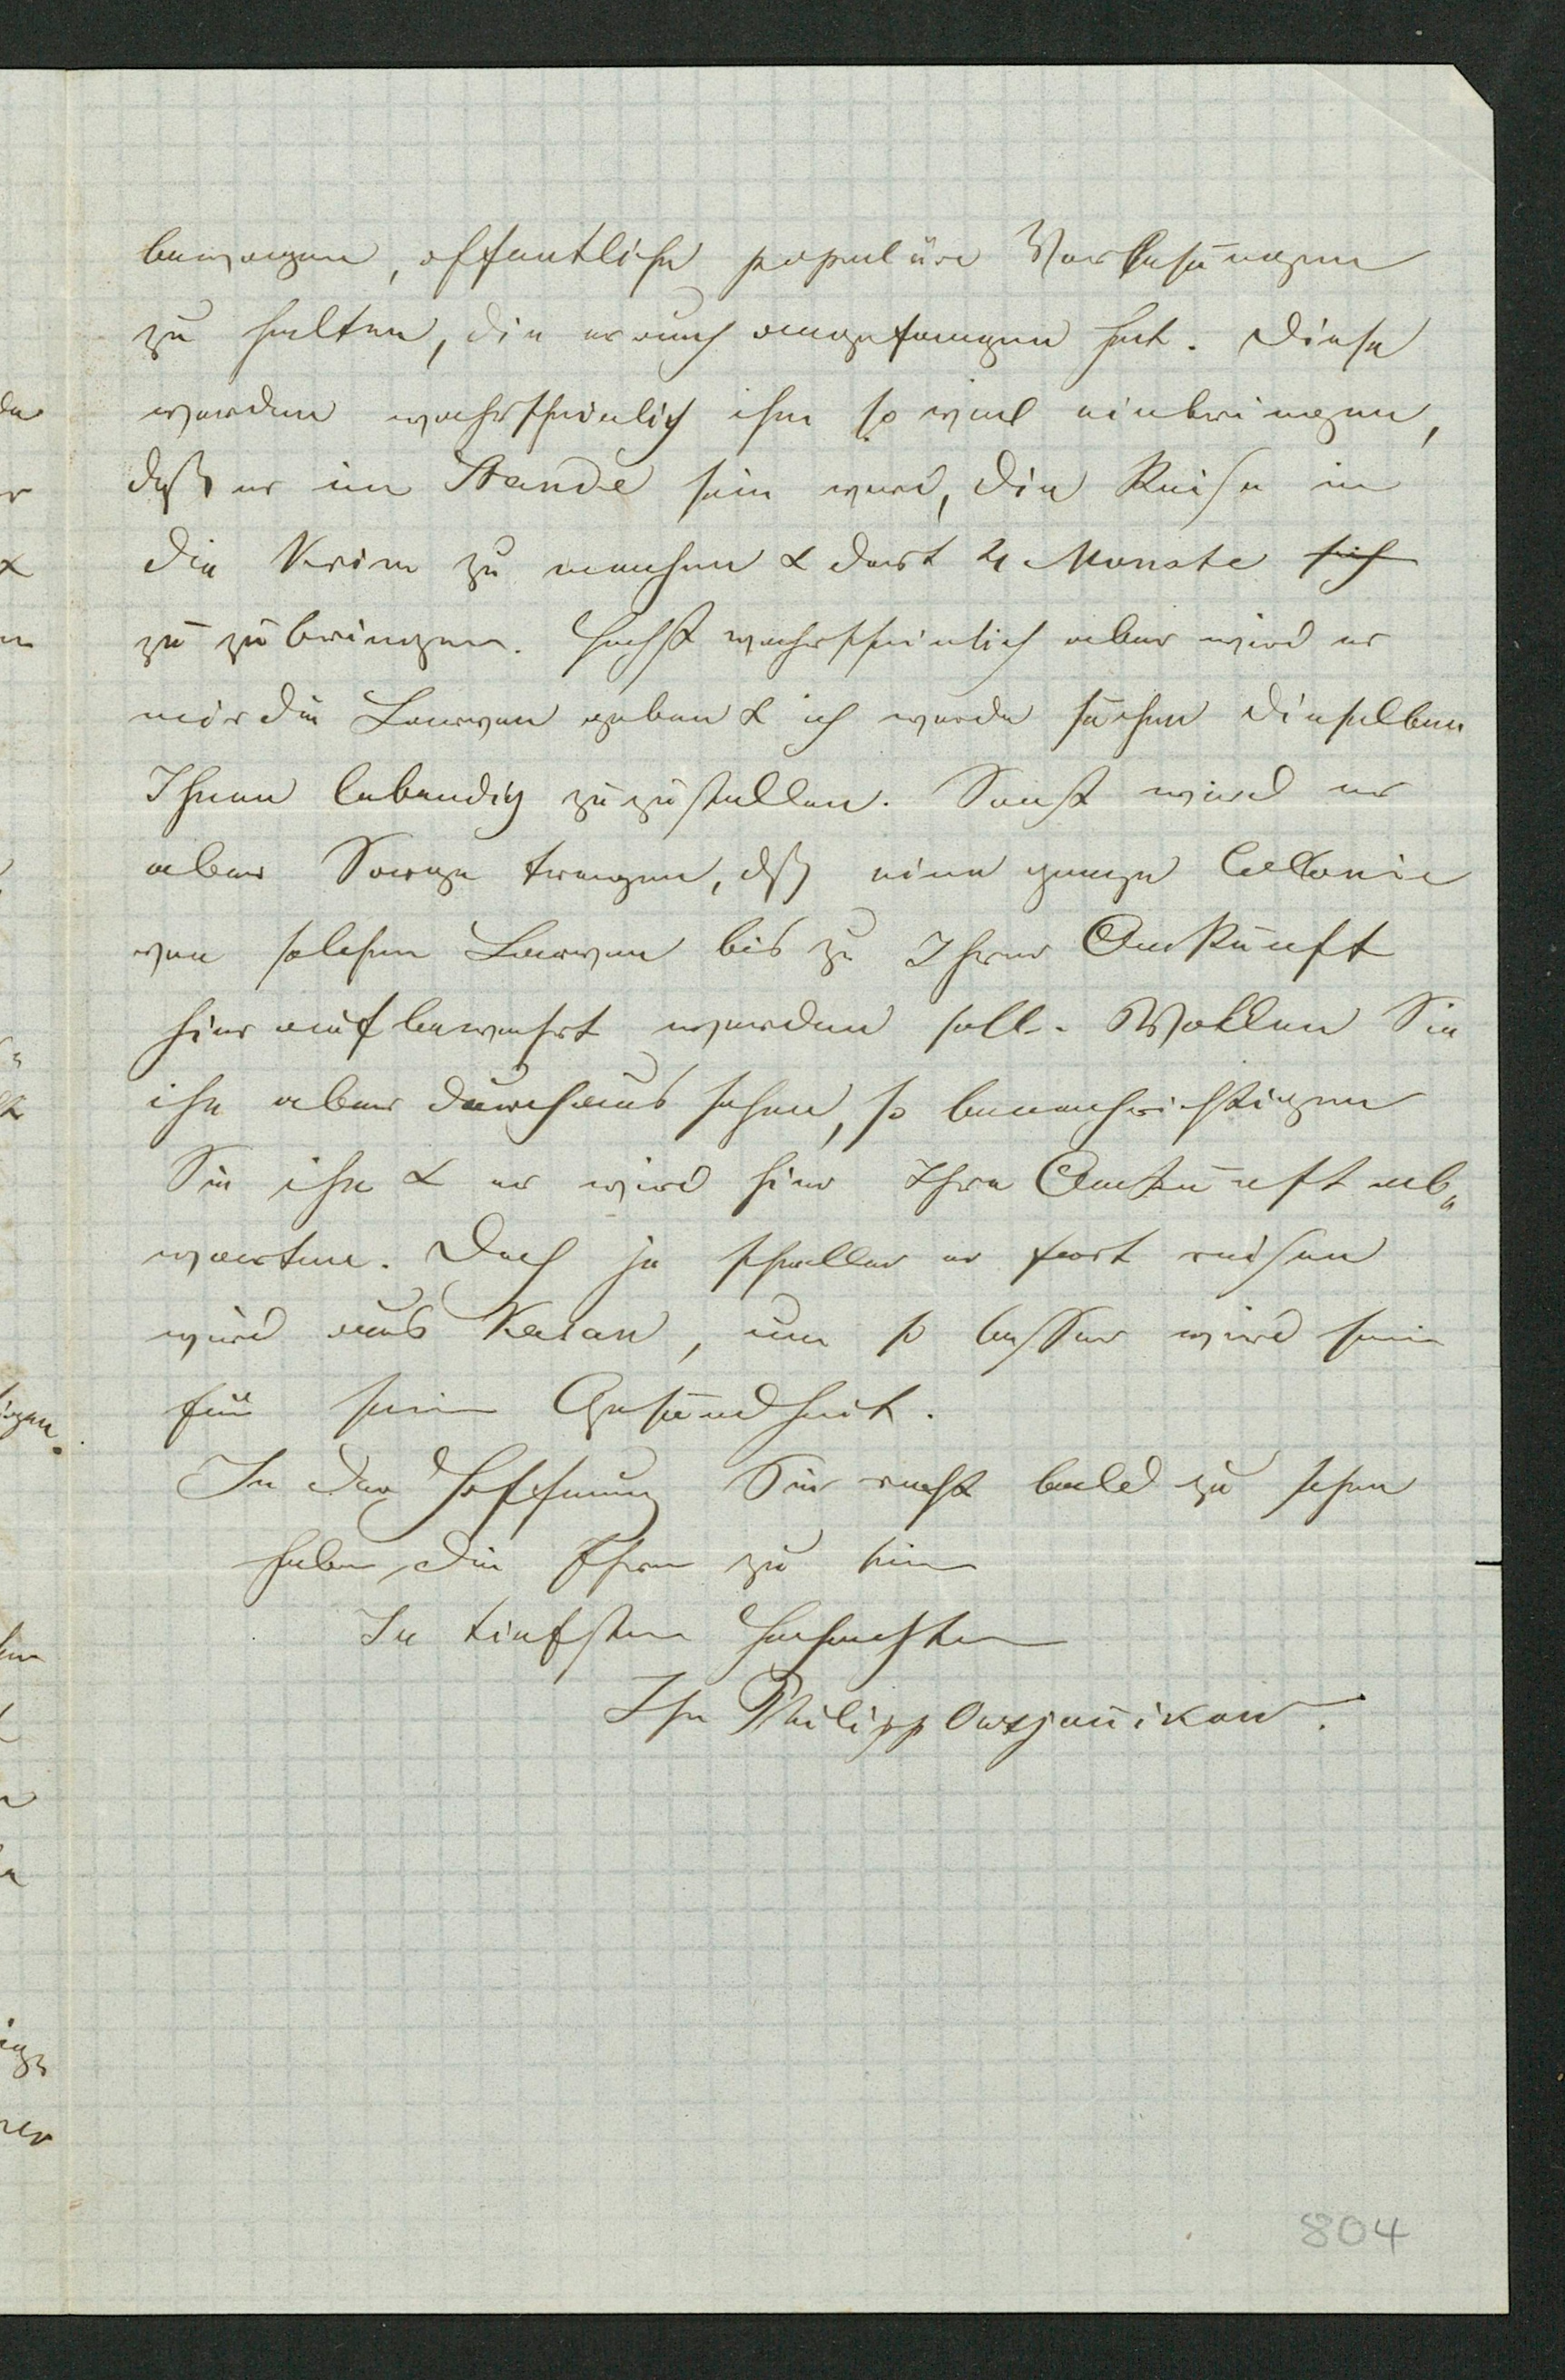 bewogen, öffentliche populäre Vorlesungen
zu halten, die er auch angefangen hat. Diese
werden wahrscheinlich ihm so viel einbringen,
daß er im Stande sein werd, die Reise in
die Krim zu machen & dort 4 Monate sich
zu zubringen. Höchst wahrscheinlich aber wird er
mir die Larven geben & ich werde suchen dieselben
Ihnen lebendig zuzustellen. Sonst wird er
aber Sorge tragen, dß eine ganze Collonie
von solchen Larven bis zu Ihrer Ankunft
hier aufbewahrt werden soll. Wollen Sie
ihn aber durchaus sehen, so benachrichtigen
Sie ihn & er wird hier Ihre Ankunft ab„
warten. Doch je schneller er fort reisen
wird aus Kasan, um so besser wird sein
für seine Gesundheit.
In der Hoffnung Sie recht bald zu sehen
habe die Ehre zu sein
In tiefsten Hochachten
Ihr Philipp Owsjannikow.
804